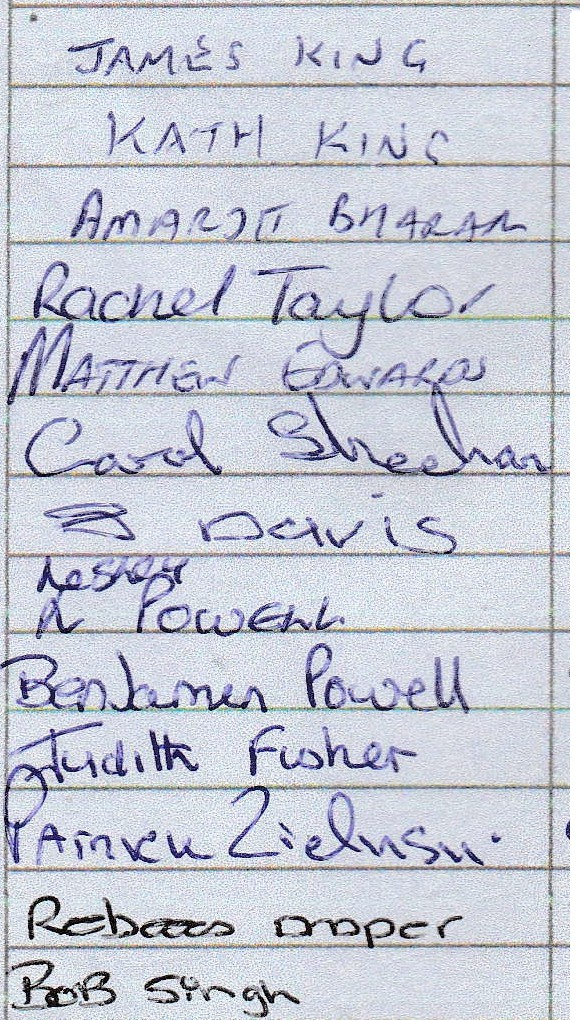 JAMES KING
KATH KING
AMARJIT BHARAJ
Rachel Taylor
MATTHEW EDWARDS
Carol Sheehan
Davis
Lesley
POWELL
Benjamen Powell
Judith Fisher
PATRICK Zielinski
Rebecca Draper
BOB Singh